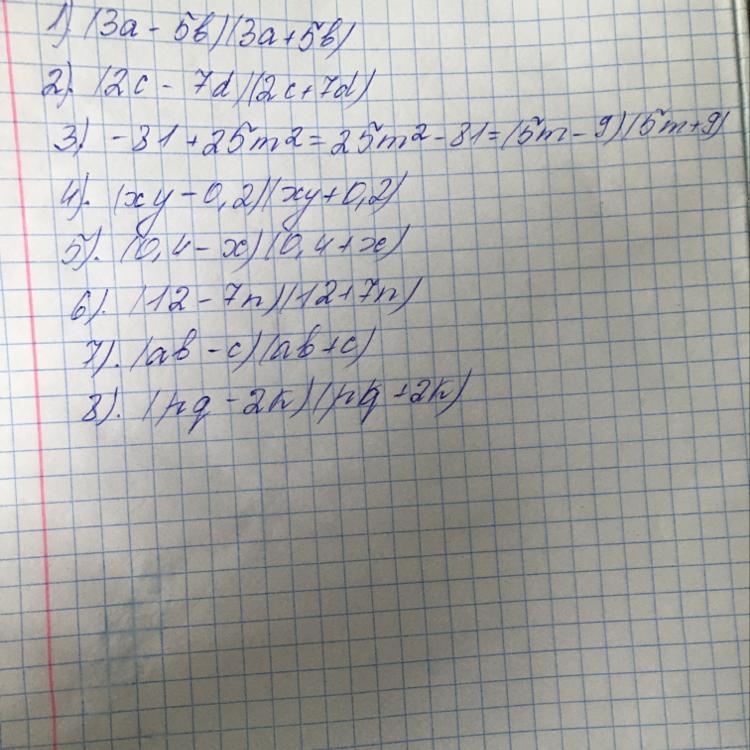 1). (3a - 5b)(3a+5b)
2). (2c - 7d)(2c+7d)
3) -81+25m²=25m²-81=(5m-9)(5m+9)
4). (xy-0,2)(xy+0,2)
5). (0,4-x)(0,4+x)
6). (12-7n)(12+7n)
7). (ab-c)(ab+c)
8). (pq-2k)(pq+2k)